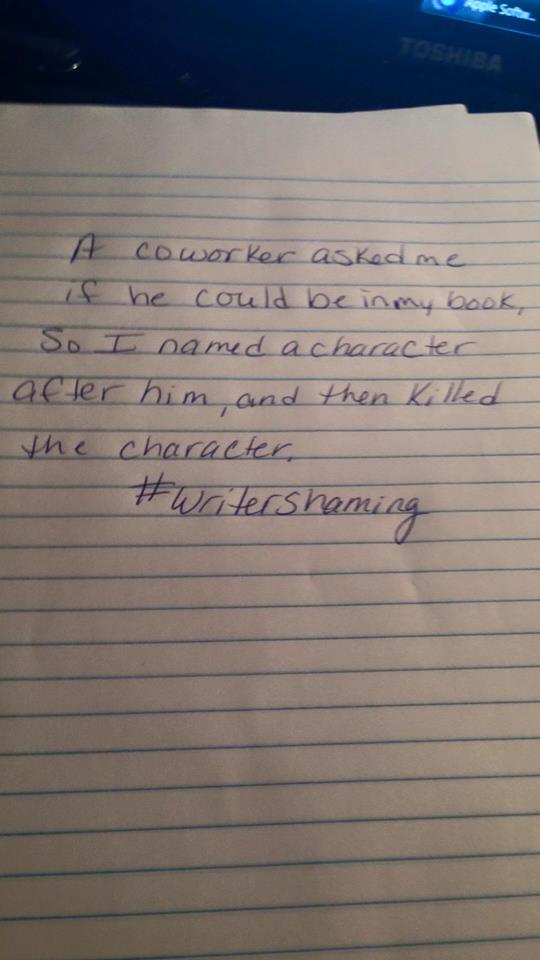 Apple Softw...
TOSHIBA
A coworker asked me
if he could be in my book,
So I named a character
after him, and then killed
the character.
#Writershaming